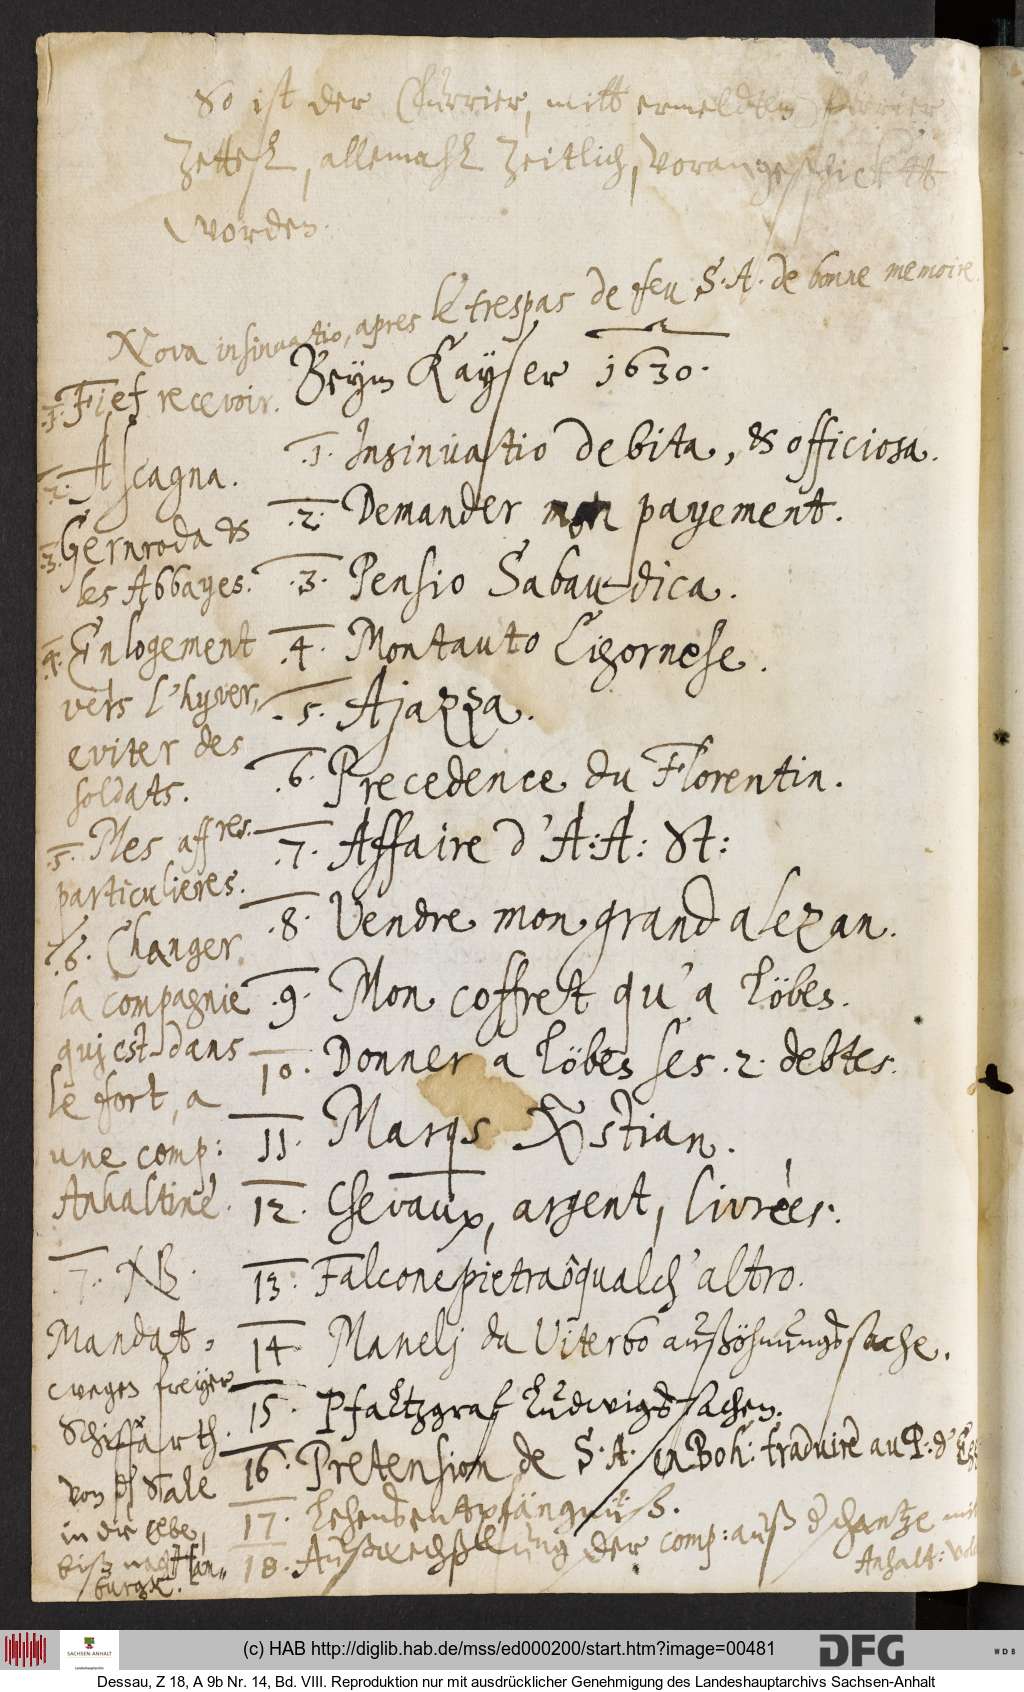 So ist der Currier, mitt ermeldten
Zettelk, allemahl zeitlich, vorangeschicktt
worden.
Nova insinuatio, apres le trespas de feu S.A. de bonne memoire.
.1. Fief recevoir.
.2. Ascagna.
.3. Gernroda &
les Abbayes.
.4. Enlogement
vers l'hyver,
eviter des
soldats.
.5. Mes aff.res
particulieres.
.6. Changer
la compagnie
quj est dans
le fort, a
une comp:
Anhaltine.
.7. NB.
Mandat,
wegen freyer
Schiffarth.
von der Sale
in die Elbe,
biß nach Ham„
burgk.
Beym Kayser 1630.
.1. Insinuatio debita, & officiosa.
.2. Demander mon payement.
.3. Pensio Sabaudica.
.4. Montauto Ligornese.
.5. Ajazza.
.6. Precedence du Florentin.
.7. Affaire d'A:A: St:
.8. Vendre mon grand alezan.
.9. Mon coffret qu'a Löbes.
10. Donner a Löben ses .2. debtes.
11. Marqs Xstian.
12. Chevaux, argent, livrèes.
13. Falconepietra ô qualch'altro.
14. Manelj da Viterbo außöhnungssache.
15. Pfaltzgraf Ludwigs sachen.
16. Pretension de S.A. en Boh: traduire au P: d'
17. Lehensentpfängnüß.
18. Außwechßlung der comp: auß d' schantze mit
Anhalt:
(c) HAB http://diglib.hab.de/mss/ed000200/start.htm?image=00481
SACHSEN-ANHALT
Landeshauptarchiv
DFG
WDB
Dessau, Z 18, A 9b Nr. 14, Bd. VIII. Reproduktion nur mit ausdrücklicher Genehmigung des Landeshauptarchivs Sachsen-Anhalt